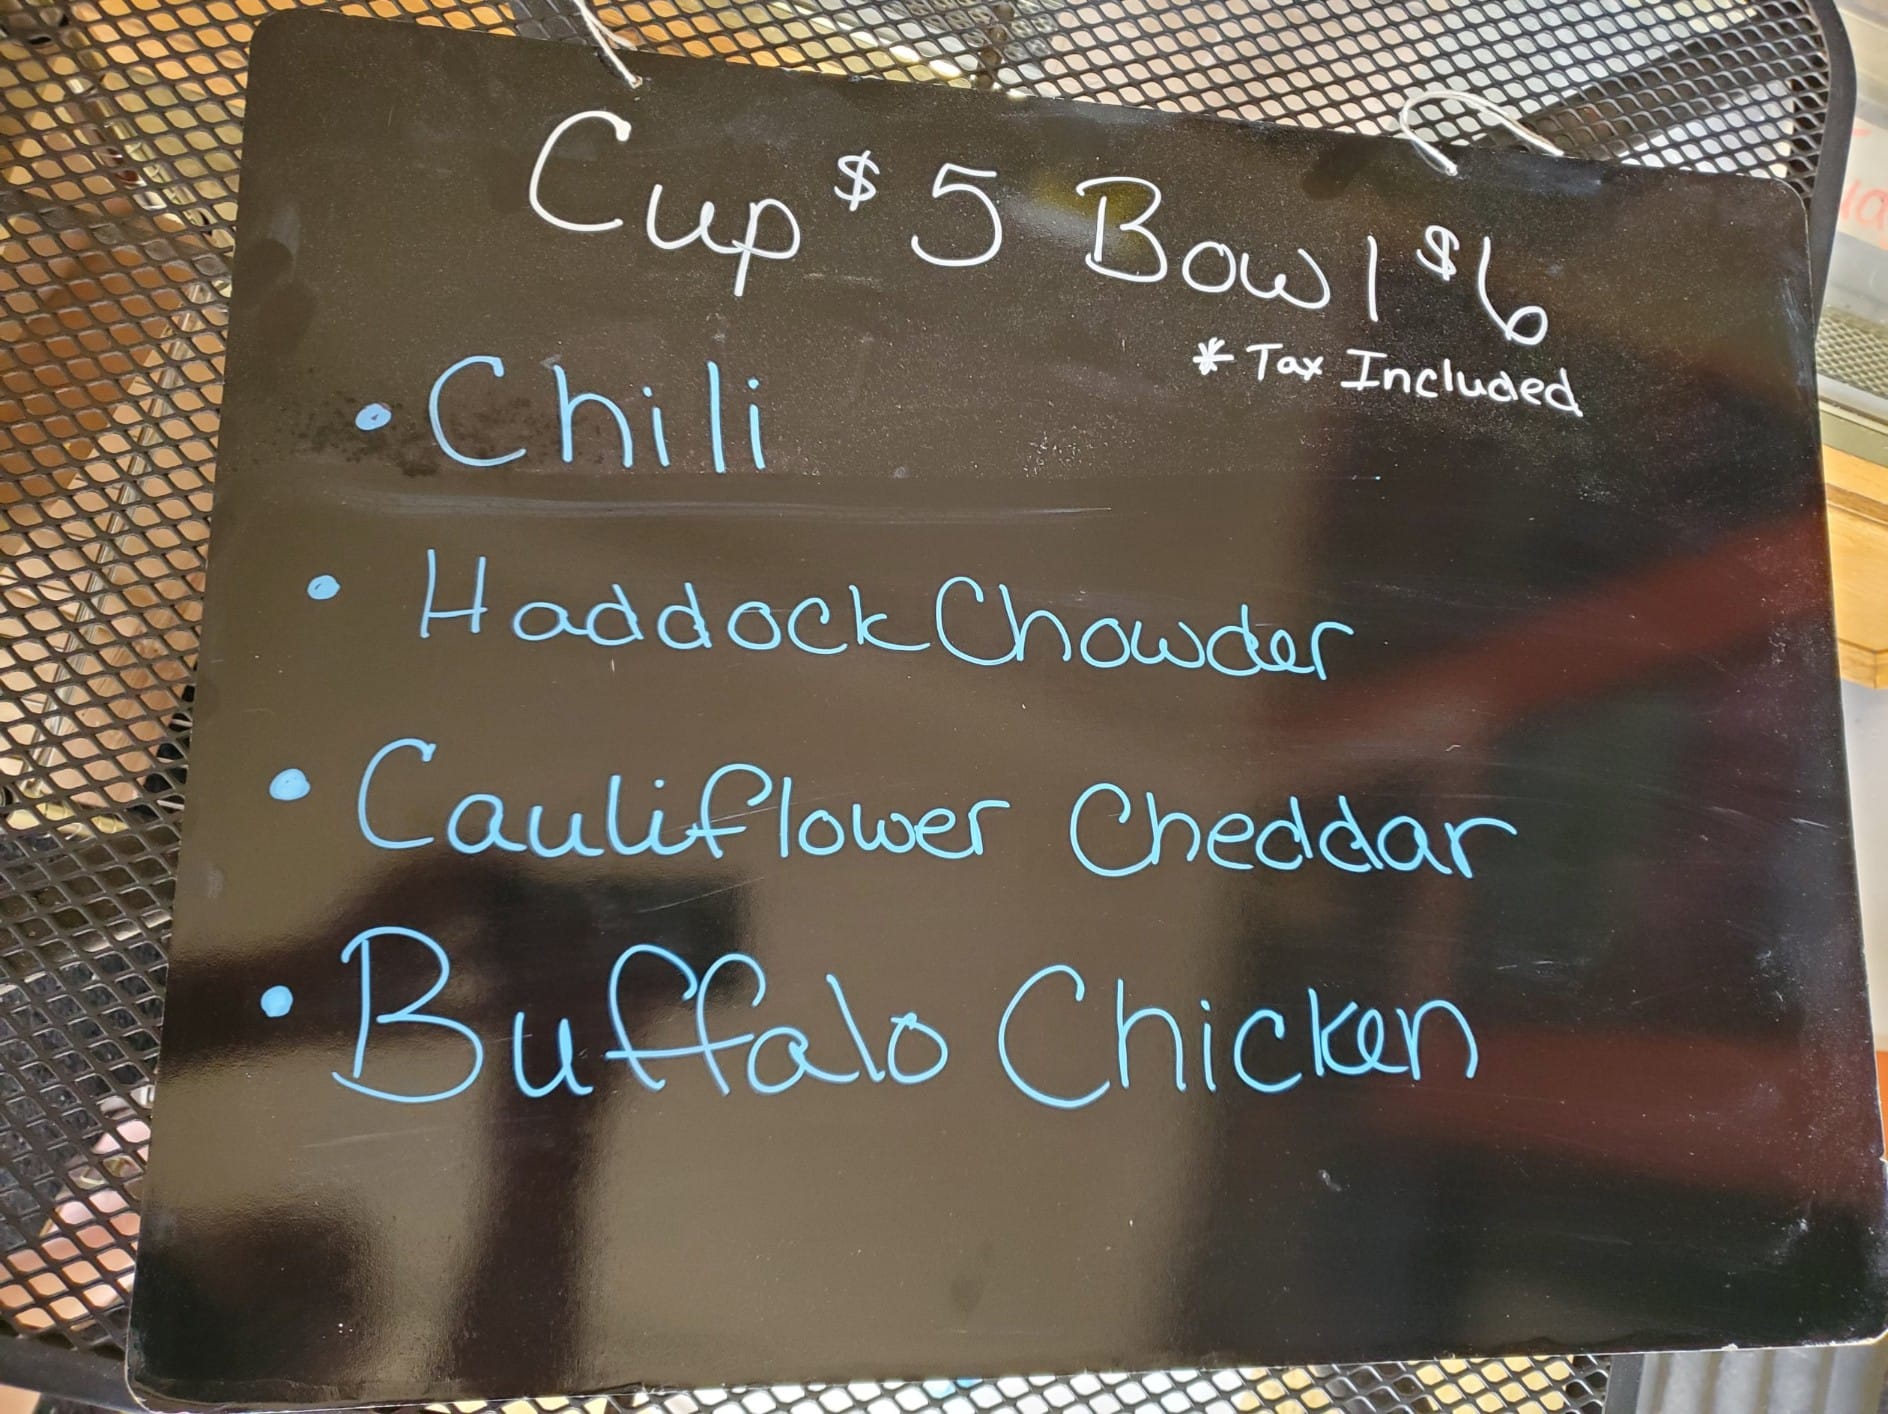 Cup $5 Bowl $6
* Tax Included
• Chili
• Haddock Chowder
• Cauliflower Cheddar
• Buffalo Chicken